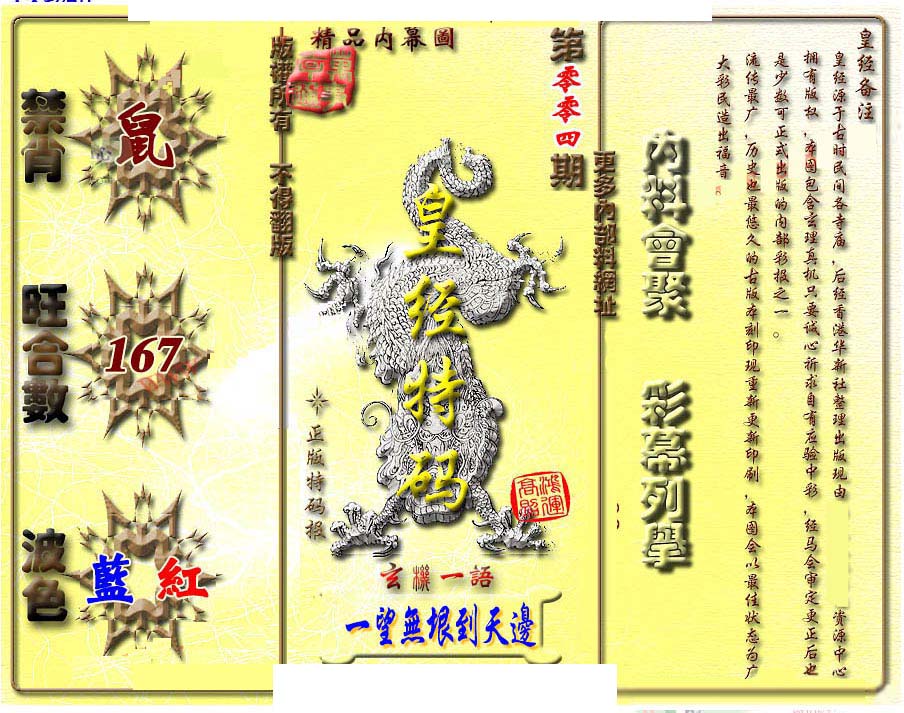 禁肖
鼠
旺合數
167
波色
藍 紅
版權所有 不得翻版
精品内幕圖
第零零四期
皇经特码
正版特码报
鴻運高照
玄機一語
一望無垠到天邊
更多內部料網址
内料會聚
彩幕列舉
皇经备注
皇经源于古时民间各寺庙,后经香港华新社整理出版现由 资源中心
拥有版权,本图包含玄理真机只要诚心祈求自有应验中彩,经马会审定更正后也
是少数可正式出版的内部彩报之一。
流传最广,历史也最悠久的古版本刻印现重新更新印刷,本图会以最佳状态为广
大彩民造出福音